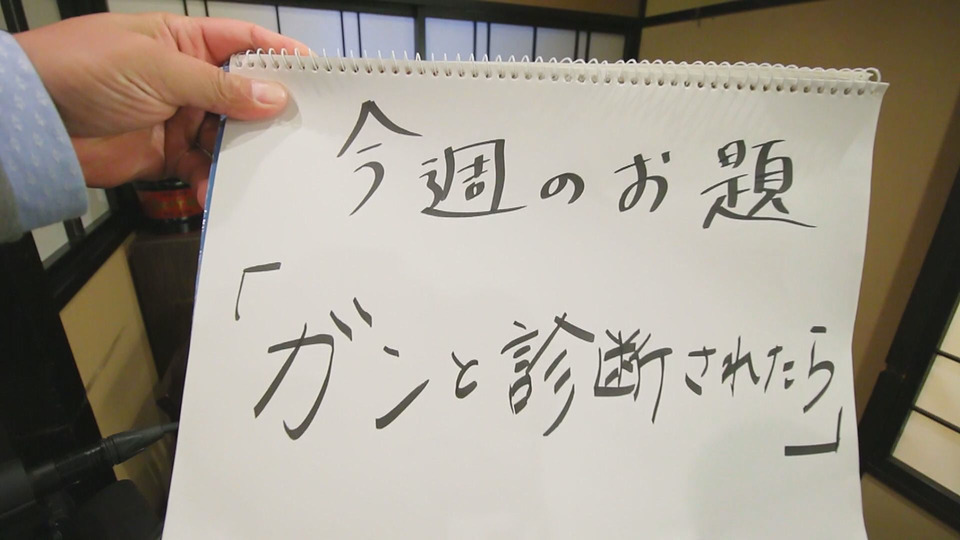 今週のお題
「ガンと診断されたら」